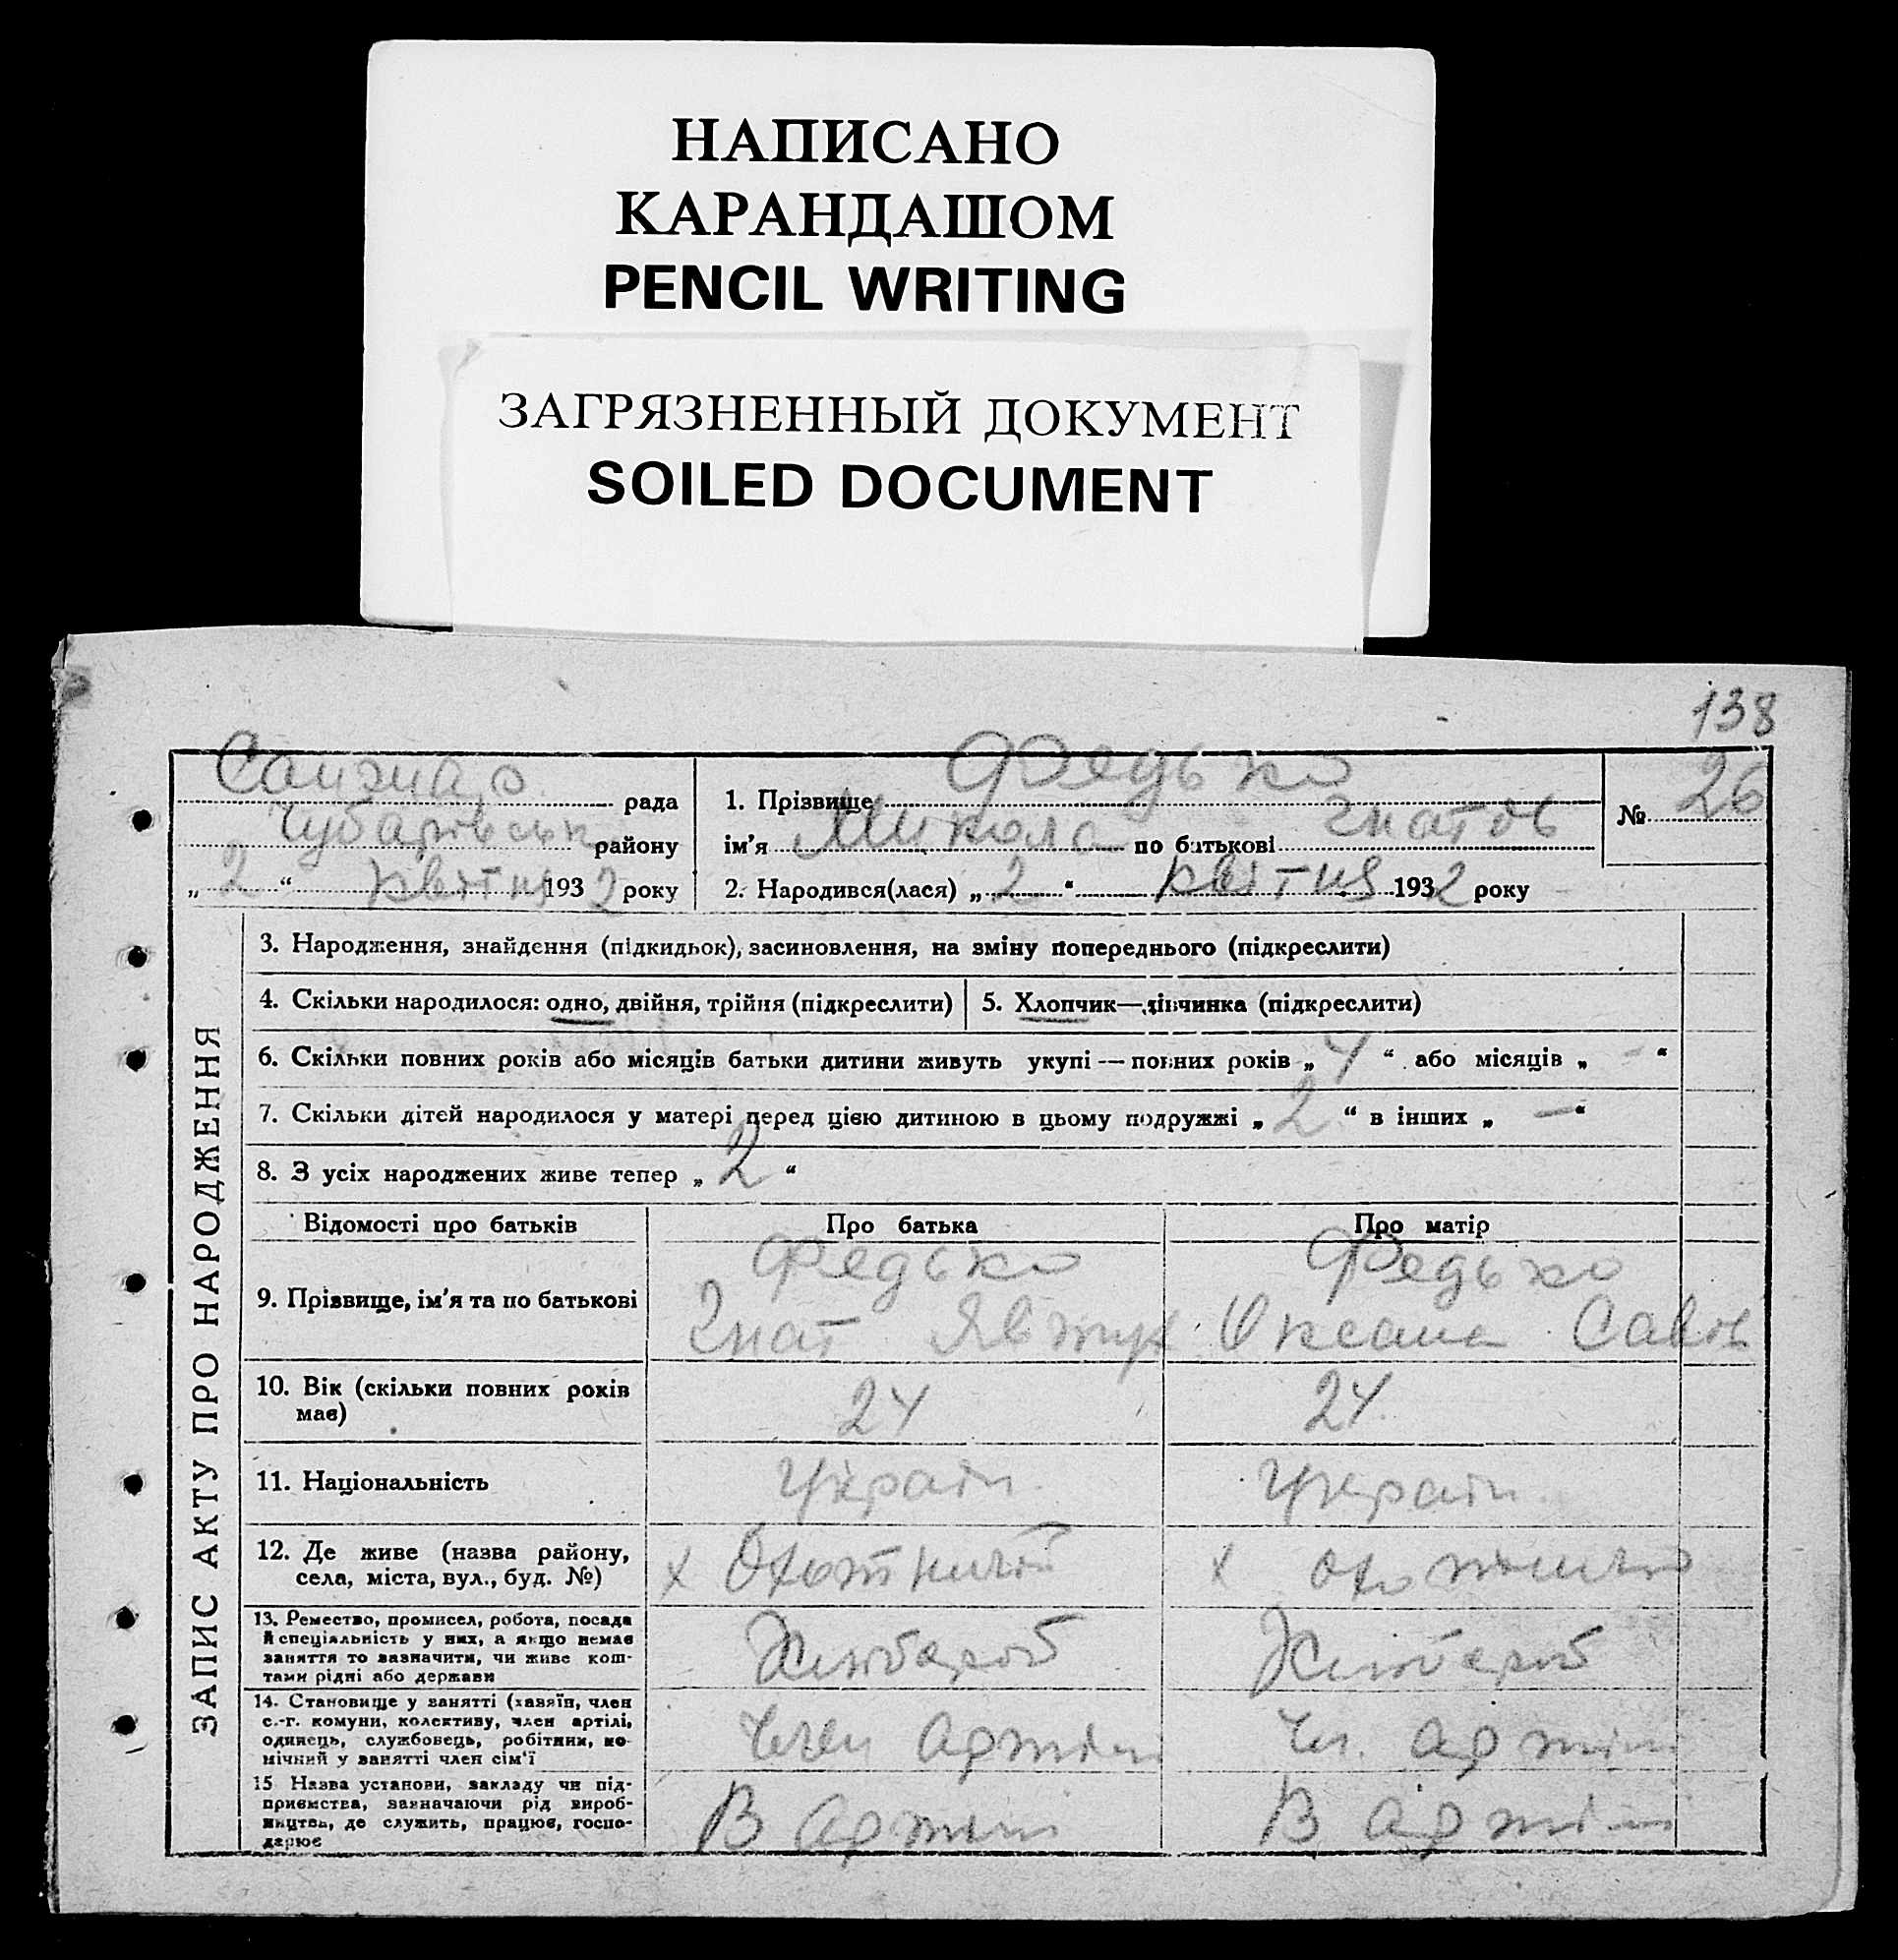 НАПИСАНО
КАРАНДАШОМ
PENCIL WRITING
ЗАГРЯЗНЕННЫЙ ДОКУМЕНТ
SOILED DOCUMENT
138
ЗАПИС АКТУ ПРО НАРОДЖЕННЯ
рада
Чубарівськ району
„ 2 “ квітня 1932 року
1. Прізвище Федько
ім'я Микола по батькові Гнатов
№ 26
2. Народився(лася) „ 2 “ квітня 1932 року
3. Народження, знайдення (підкидьок), засиновлення, на зміну попереднього (підкреслити)
4. Скільки народилося: одно, двійня, трійня (підкреслити)
5. Хлопчик—дівчинка (підкреслити)
6. Скільки повних років або місяців батьки дитини живуть укупі — повних років „ 4 “ або місяців „ — “
7. Скільки дітей народилося у матері перед цією дитиною в цьому подружжі „ 2 “ в інших „ — “
8. З усіх народжених живе тепер „ 2 “
Відомості про батьків Про батька Про матір
9. Прізвище, ім'я та по батькові
Федько
Гнат
Федько
Оксана Савов
10. Вік (скільки повних років
має)
24
24
11. Національність
Україн.
Україн.
12. Де живе (назва району,
села, міста, вул., буд. №)
х
х
13. Ремество, промисел, робота, посада
й спеціяльність у них, а якщо немає
заняття то зазначити, чи живе кош-
тами рідні або держави
Хлібороб
Хлібороб
14. Становище у занятті (хазяїн, член
с.-г. комуни, колективу, член артілі,
одинець, службовець, робітник, по-
мічний у занятті член сім'ї
Член артіли
Чл. артіли
15 Назва установи, закладу чи під-
приємства, зазначаючи рід вироб-
ництва, де служить, працює, госпо-
дарює
В артілі
В артілі